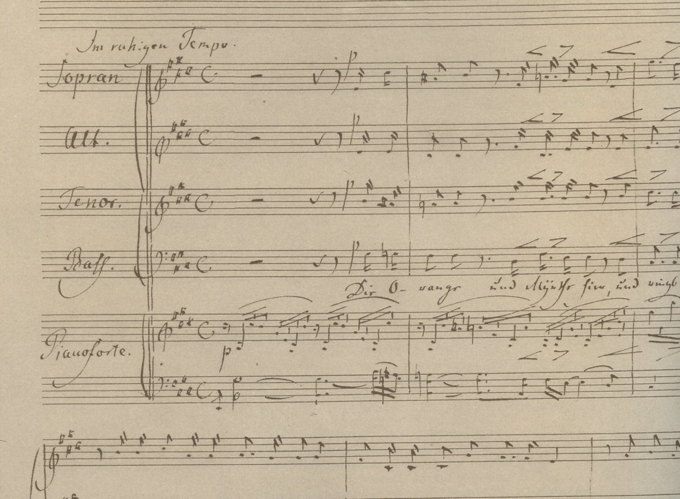 Im ruhigen Tempo.
Sopran
Alt.
Tenor.
Bass.
Die O- range und Myrthe hier, und rings
Pianoforte.
p